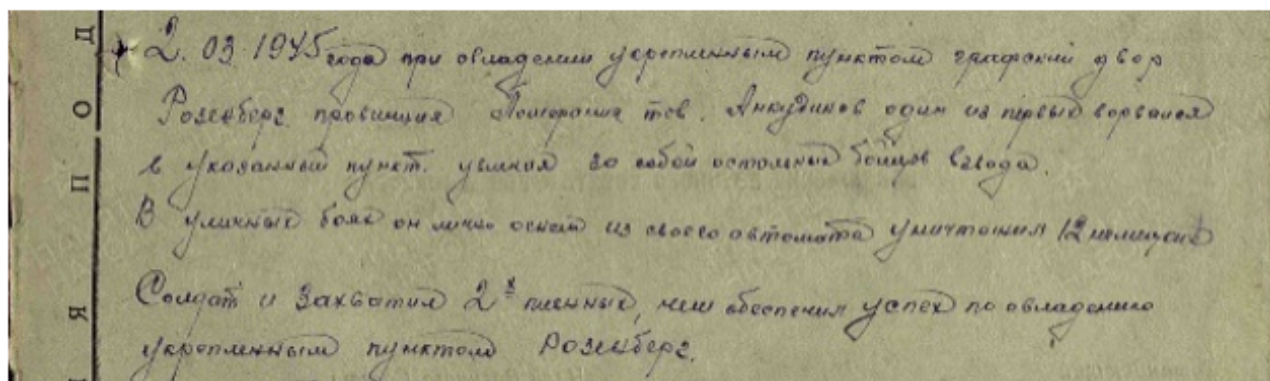 Д
О
П
Я
2. 03 1945 года при овладении укрепленным пунктом графский двор
Розенберг провинция Померания тов. Анкудинов один из первых ворвался
в указанный пункт. увлекая за собой остальных бойцов взвода.
В уличных боях он лично огнем из своего автомата уничтожил 12 немецких
Солдат и захватил 2х пленных, чем обеспечил успех по овладению
укрепленным пунктом Розенберг.